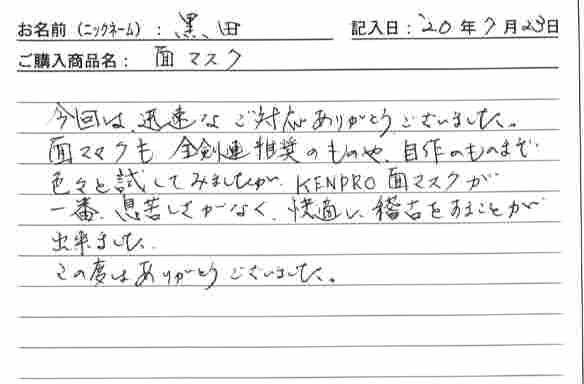 お名前（ニックネーム）： 黒田 記入日：'20年7月23日
ご購入商品名： 面マスク
今回は、迅速なご対応ありがとうございました。
面マスクも 全剣連推奨のものや、自作のものまで
色々と試してみましたが、KENPRO面マスクが
一番、息苦しさがなく、快適に、稽古をすることが
出来ました。
この度はありがとうございました。